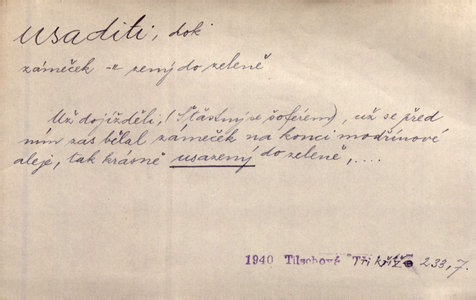 usaditi, dok
zámeček -z zený do zeleně
Už dojížděli, (Šťastný se šoférem), už se před
ním zas bělal zámeček na konci modřínové
aleje, tak krásně usazený do zeleně, ....
1940 Tilschová Tři kříže 233,7.